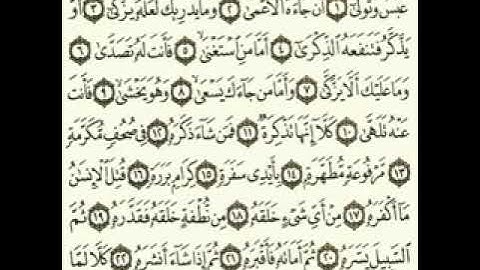 عَبَسَ وَتَوَلَّىٰٓ ١ أَن جَآءَهُ ٱلْأَعْمَىٰ ٢ وَمَا يُدْرِيكَ لَعَلَّهُۥ يَزَّكَّىٰٓ ٣ أَوْ
يَذَّكَّرُ فَتَنفَعَهُ ٱلذِّكْرَىٰٓ ٤ أَمَّا مَنِ ٱسْتَغْنَىٰ ٥ فَأَنتَ لَهُۥ تَصَدَّىٰ ٦
وَمَا عَلَيْكَ أَلَّا يَزَّكَّىٰ ٧ وَأَمَّا مَن جَآءَكَ يَسْعَىٰ ٨ وَهُوَ يَخْشَىٰ ٩ فَأَنتَ
عَنْهُ تَلَهَّىٰ ١٠ كَلَّآ إِنَّهَا تَذْكِرَةٌ ١١ فَمَن شَآءَ ذَكَرَهُۥ ١٢ فِى صُحُفٍ مُّكَرَّمَةٍ
١٣ مَّرْفُوعَةٍ مُّطَهَّرَةٍۭ ١٤ بِأَيْدِى سَفَرَةٍ ١٥ كِرَامٍۭ بَرَرَةٍ ١٦ قُتِلَ ٱلْإِنسَـٰنُ
مَآ أَكْفَرَهُۥ ١٧ مِنْ أَىِّ شَىْءٍ خَلَقَهُۥ ١٨ مِن نُّطْفَةٍ خَلَقَهُۥ فَقَدَّرَهُۥ ١٩ ثُمَّ
ٱلسَّبِيلَ يَسَّرَهُۥ ٢٠ ثُمَّ أَمَاتَهُۥ فَأَقْبَرَهُۥ ٢١ ثُمَّ إِذَا شَآءَ أَنشَرَهُۥ ٢٢ كَلَّا لَمَّا